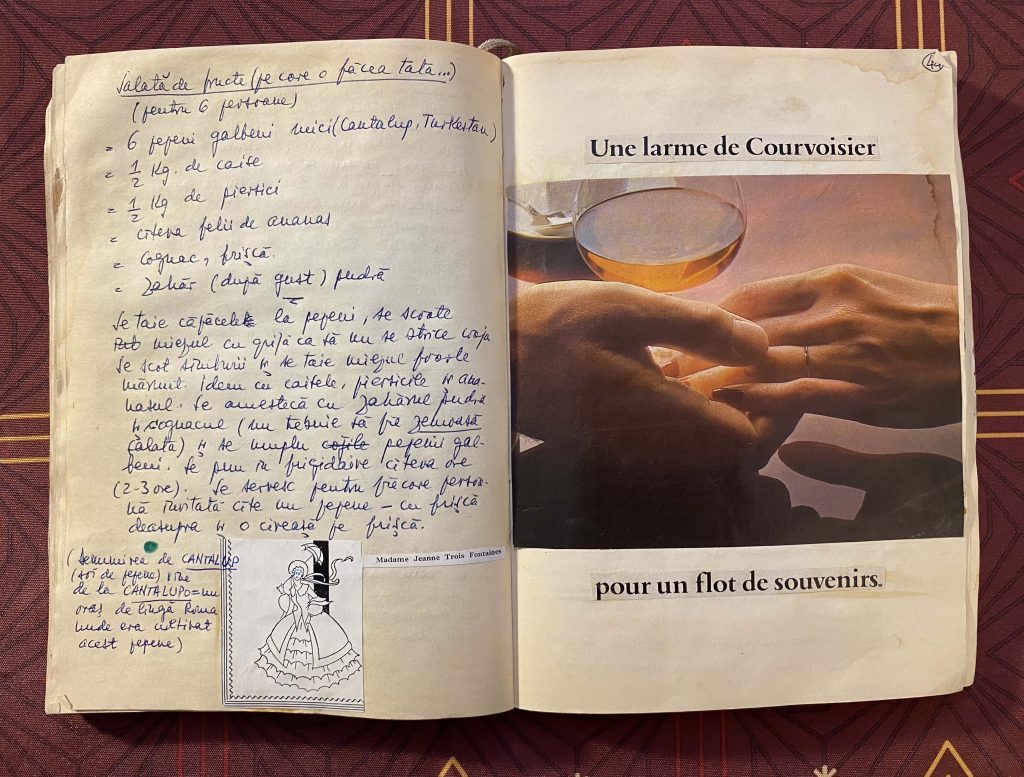 Salată de fructe (pe care o făcea tata...)
(pentru 6 persoane)
= 6 pepeni galbeni mici (Cantalup, Turkestan)
= 1/2 Kg. de caise
= 1/2 Kg de piersici
= cîteva felii de ananas
= cognac, frişcă.
= zahăr (după gust) pudră
Se taie căpăcele la pepeni, se scoate
miezul cu grijă ca să nu se strice coaja
Se scot sîmburii şi se taie miezul foarte
mărunt. Idem cu caisele, piersicile şi ana-
nasul. Se amestecă cu zahărul pudră
şi cognacul (nu trebuie să fie zemoasă
salata) şi se umplu cojile pepenii gal-
beni. Se pun în frigidaire cîteva ore
(2-3 ore). Se servesc pentru fiecare persoa-
nă invitată cîte un pepene – cu frişcă
deasupra şi o cireaşă pe frişcă.
(Denumirea de CANTALUP
(soi de pepene) vine
de la CANTALUPO = un
oraş de lîngă Roma
unde era cultivat
acest pepene)
Madame Jeanne Trois Fontaines
44
Une larme de Courvoisier
pour un flot de souvenirs.